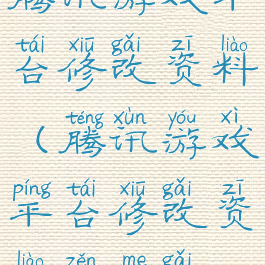 tái xiū gǎi zī liào
台修改资料
téng xùn yóu xì
（腾讯游戏
píng tái xiū gǎi zī
平台修改资
liào zěn me gǎi